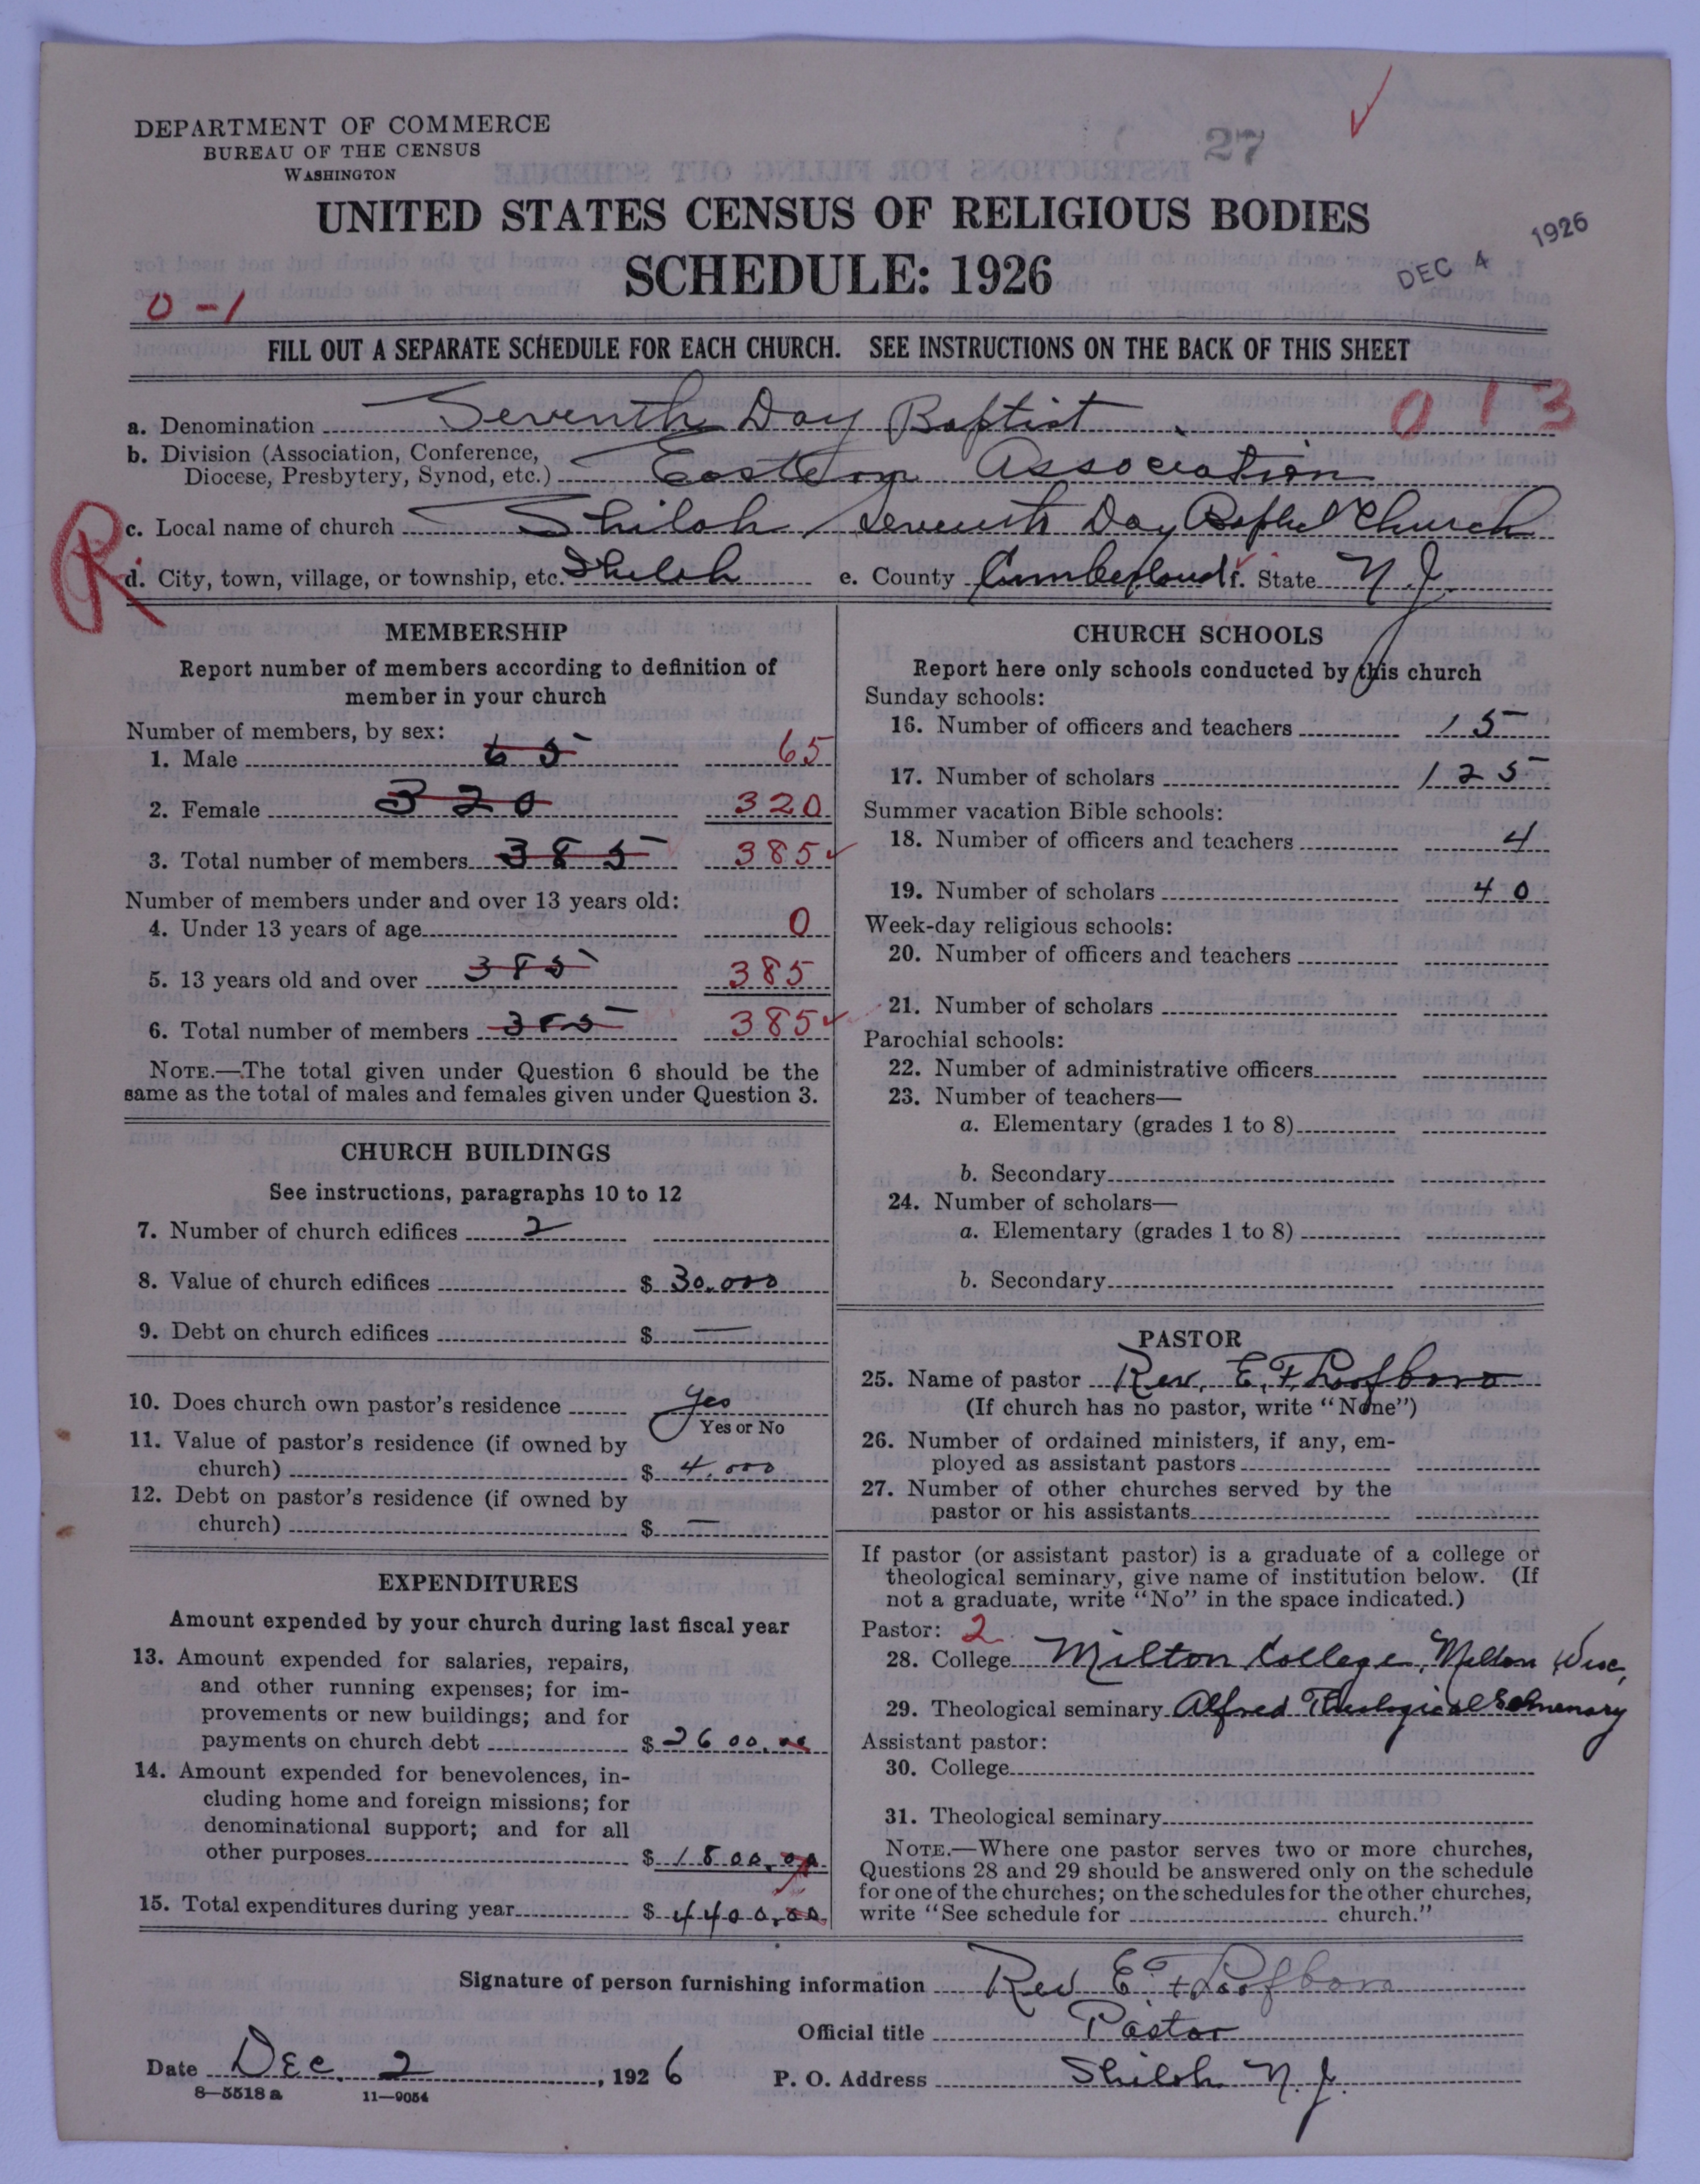 DEPARTMENT OF COMMERCE
BUREAU OF THE CENSUS
WASHINGTON
27
UNITED STATES CENSUS OF RELIGIOUS BODIES
SCHEDULE: 1926
DEC 4 1926
0-1
FILL OUT A SEPARATE SCHEDULE FOR EACH CHURCH. SEE INSTRUCTIONS ON THE BACK OF THIS SHEET
013
a. Denomination Seventh Day Baptist
b. Division (Association, Conference,
Diocese, Presbytery, Synod, etc.) Eastern Association
c. Local name of church Shiloh Seventh Day Baptist Church
R
d. City, town, village, or township, etc. Shiloh e. County Cumberland f. State N. J.
MEMBERSHIP
Report number of members according to definition of
member in your church
Number of members, by sex:
1. Male 65 65
2. Female 320 320
3. Total number of members 385 385
Number of members under and over 13 years old:
4. Under 13 years of age 0
5. 13 years old and over 385 385
6. Total number of members 385 385
NOTE.—The total given under Question 6 should be the
same as the total of males and females given under Question 3.
CHURCH BUILDINGS
See instructions, paragraphs 10 to 12
7. Number of church edifices 2
8. Value of church edifices $ 30,000
9. Debt on church edifices $ —
10. Does church own pastor's residence Yes
Yes or No
11. Value of pastor's residence (if owned by
church) $ 4,000
12. Debt on pastor's residence (if owned by
church) $ —
EXPENDITURES
Amount expended by your church during last fiscal year
13. Amount expended for salaries, repairs,
and other running expenses; for im-
provements or new buildings; and for
payments on church debt $ 2600.00
14. Amount expended for benevolences, in-
cluding home and foreign missions; for
denominational support; and for all
other purposes $ 1800.00
15. Total expenditures during year $ 4400.00
CHURCH SCHOOLS
Report here only schools conducted by this church
Sunday schools:
16. Number of officers and teachers 15
17. Number of scholars 125
Summer vacation Bible schools:
18. Number of officers and teachers 4
19. Number of scholars 40
Week-day religious schools:
20. Number of officers and teachers
21. Number of scholars
Parochial schools:
22. Number of administrative officers
23. Number of teachers—
a. Elementary (grades 1 to 8)
b. Secondary
24. Number of scholars—
a. Elementary (grades 1 to 8)
b. Secondary
PASTOR
25. Name of pastor Rev. E. F. Loofboro
(If church has no pastor, write "None")
26. Number of ordained ministers, if any, em-
ployed as assistant pastors
27. Number of other churches served by the
pastor or his assistants
If pastor (or assistant pastor) is a graduate of a college or
theological seminary, give name of institution below. (If
not a graduate, write "No" in the space indicated.)
Pastor: 2
28. College Milton College, Milton Wisc.
29. Theological seminary Alfred Theological Seminary
Assistant pastor:
30. College
31. Theological seminary
NOTE.—Where one pastor serves two or more churches,
Questions 28 and 29 should be answered only on the schedule
for one of the churches; on the schedules for the other churches,
write "See schedule for church."
Signature of person furnishing information Rev E. F Loofboro
Official title Pastor
Date Dec. 2, 1926
P. O. Address Shiloh N. J.
8—5518 a 11—9054